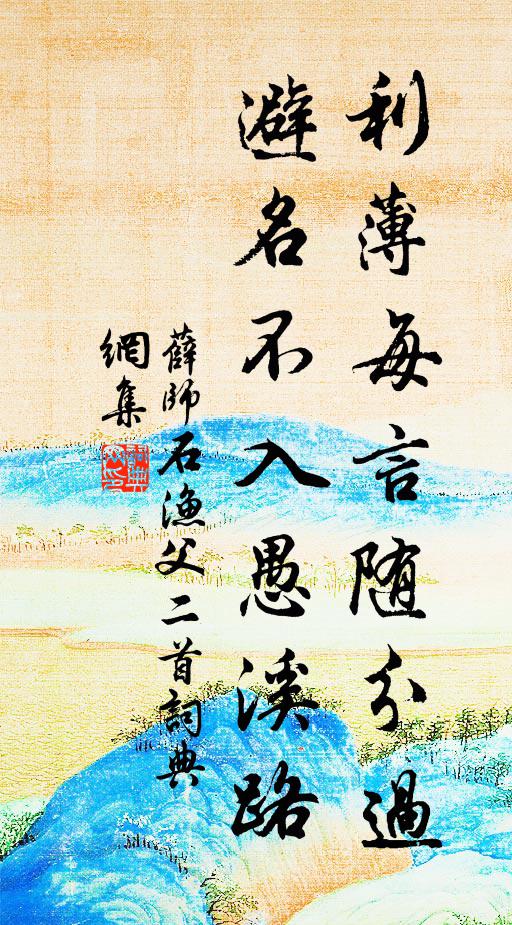 利薄每言随分過
避名不入愚溪路
薛師石漁父二首詞典
網集